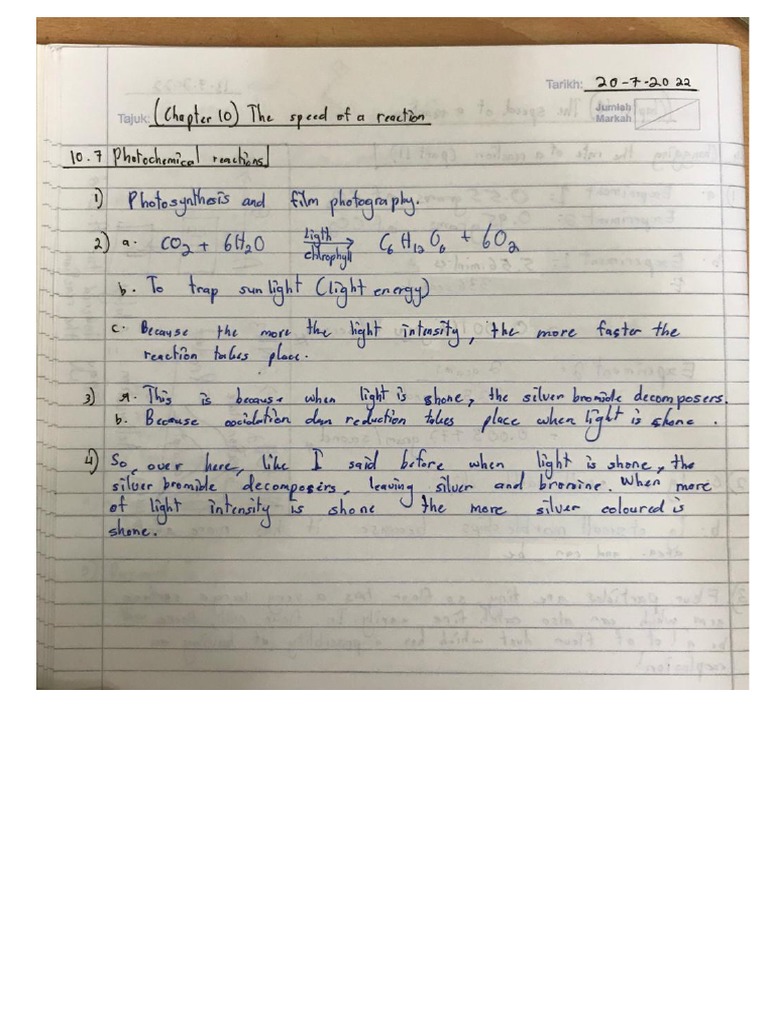 Tarikh: 20-7-2022
Tajuk: (Chapter 10) The speed of a reaction
Jumlah Markah
10.7 Photochemical reactions
1) Photosynthesis and film photography.
2) a. CO2 + 6H2O Ligth chlrophyll → C6H12O6 + 6O2
b. To trap sunlight (light energy)
c. Because the more the light intensity, the more faster the
reaction takes place.
3) a. This is because when light is shone, the silver bromide decomposers.
b. Because oxidation dan reduction takes place when light is shone.
4) So, over here, like I said before when light is shone, the
silver bromide decomposers, leaving silver and bromine. When more
of light intensity is shone the more silver coloured is
shone.